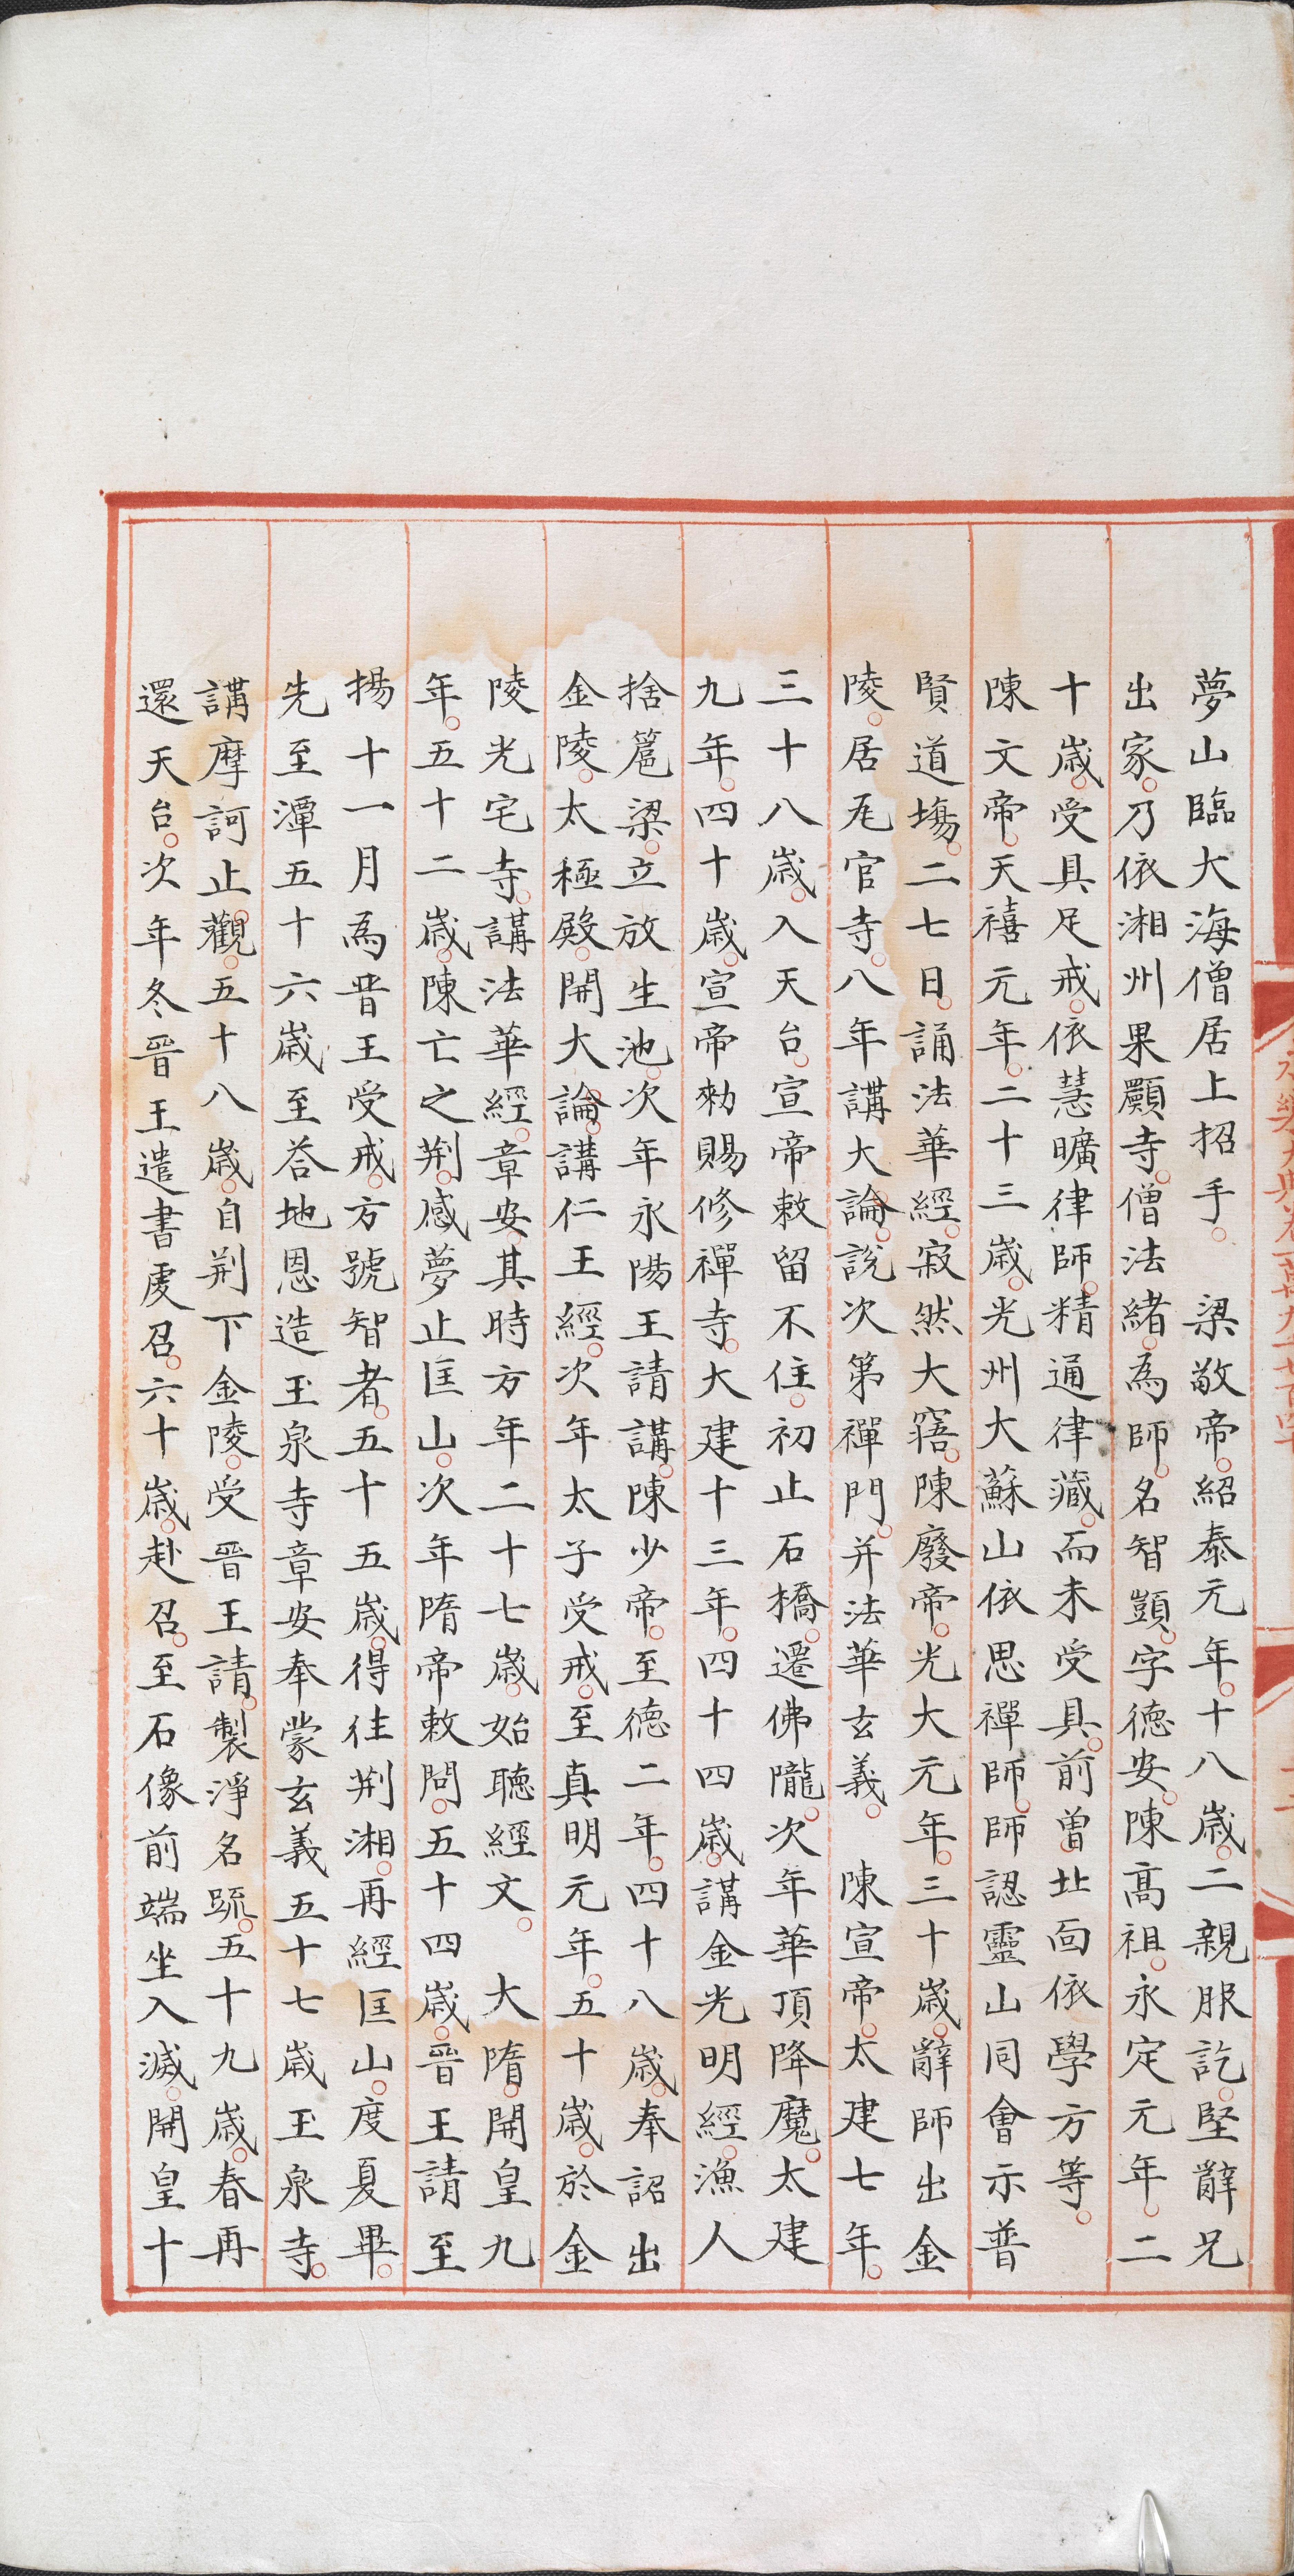 夢山臨大海僧居上招手。　梁敬帝。紹泰元年。十八歲。二親服訖。堅辭兄
出家。乃依湘州果願寺。僧法緒。為師。名智顗。字德安。陳高祖。永定元年。二
十歲。受具足戒。依慧曠律師。精通律藏。而未受具。前曾北面依學方等。
陳文帝。天禧元年。二十三歲。光州大蘇山依思禪師。師認靈山同會示普
賢道塲。二七日。誦法華經。寂然大寤。陳廢帝。光大元年。三十歲。辭師出金
陵。居瓦官寺。八年講大論。說次第禪門。并法華玄義。　陳宣帝。太建七年。
三十八歲。入天台。宣帝敕留不住。初止石橋。遷佛隴。次年華頂降魔。太建
九年。四十歲。宣帝勑賜修禪寺。大建十三年。四十四歲。講金光明經。漁人
捨扈梁。立放生池。次年永陽王請講。陳少帝。至德二年。四十八歲。奉詔出
金陵。太極殿。開大論。講仁王經。次年太子受戒。至真明元年。五十歲。於金
陵光宅寺。講法華經。章安。其時方年二十七歲。始聽經文。　大隋。開皇九
年。五十二歲。陳亡之荆。感夢止匡山。次年隋帝敕問。五十四歲。晉王請至
揚十一月為晋王受戒。方號智者。五十五歲。得往荆湘。再經匡山。度夏畢。
先至潭五十六歲至荅地恩造玉泉寺章安奉蒙玄義五十七歲玉泉寺。
講摩訶止觀。五十八歲。自荆下金陵。受晋王請。製淨名䟽。五十九歲。春再
還天台。次年冬晉王遣書虔召。六十歲。赴召。至石像前端坐入滅。開皇十